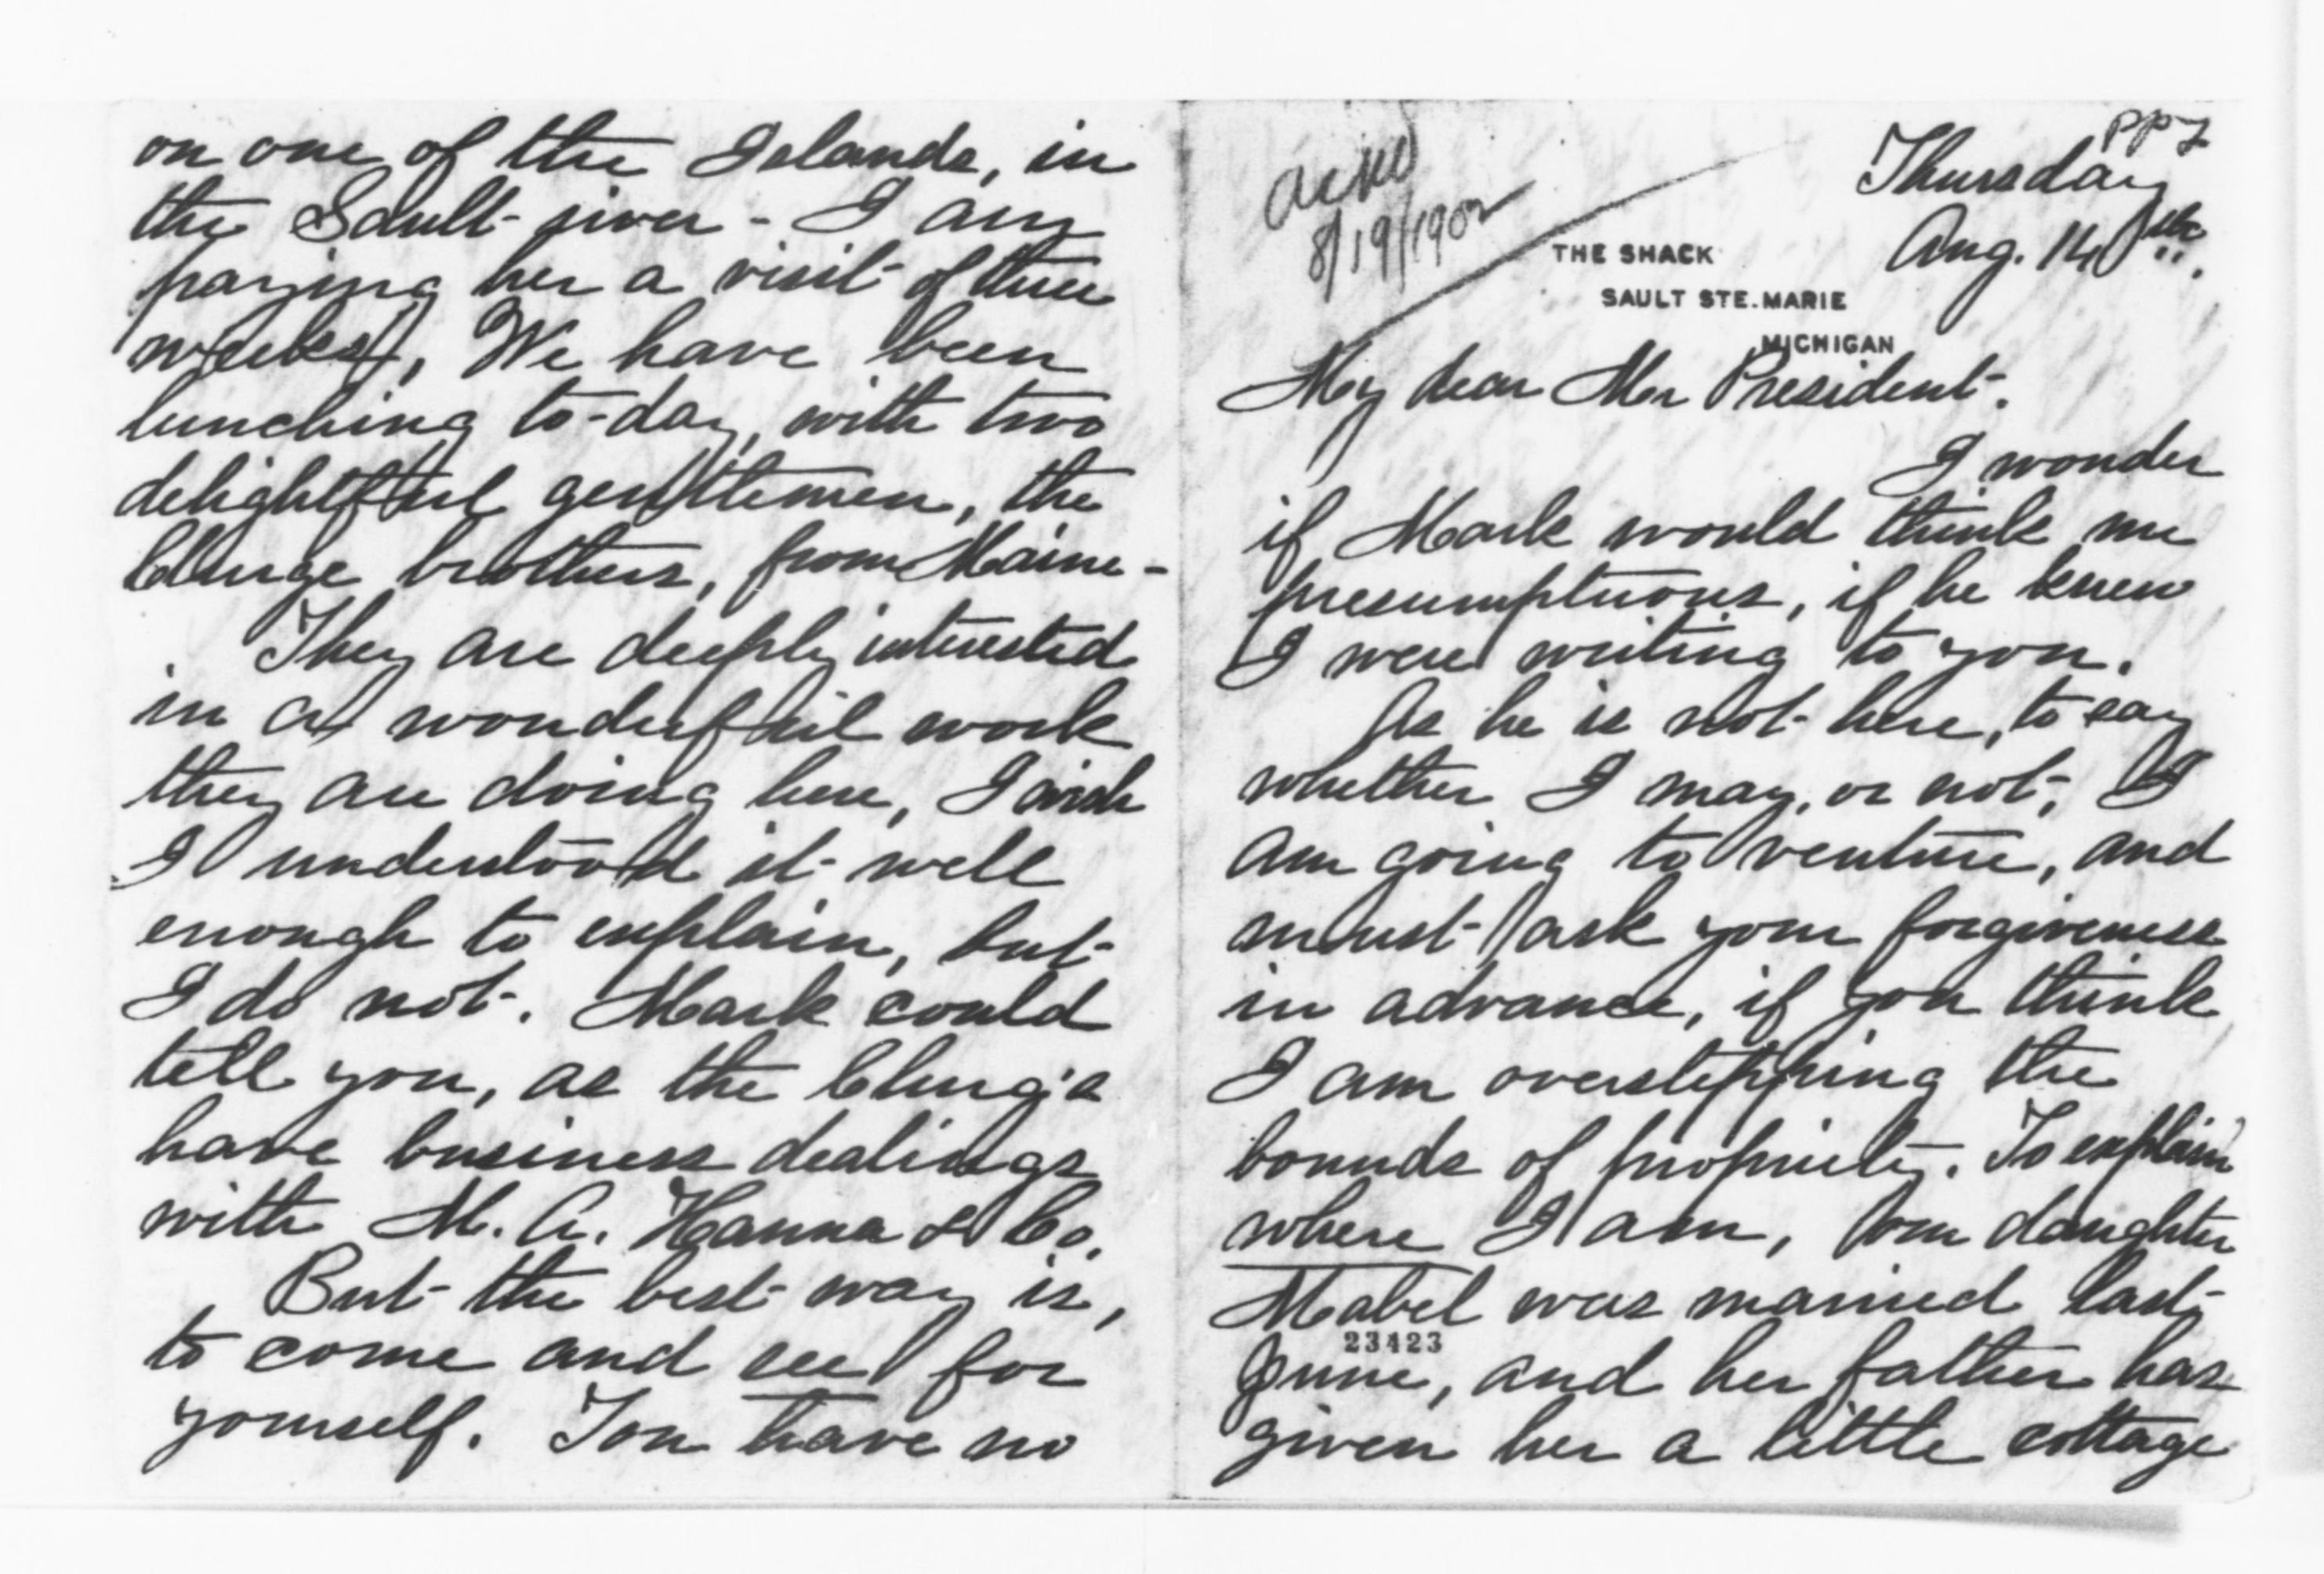 ackd
8/19/1902
PPF
Thursday
Aug. 14th.
THE SHACK
SAULT STE. MARIE
MICHIGAN
My dear Mr President.
I wonder
if Mark would think me
presumptuous, if he knew
I were writing to you.
As he is not here, to say
whether I may, or not, I
am going to venture, and
must ask your forgiveness
in advance, if you think
I am overstepping the
bounds of propriety. To explain
where I am, our daughter
Mabel was married last
23423
June, and her father has
given her a little cottage
on one of the Islands, in
the Sault river - I am
paying her a visit of three
weeks, We have been
lunching to-day, with two
delightful gentlemen, the
Clurge brothers, from Maine -
They are deeply interested
in a wonderful work
they are doing here, I wish
I understood it well
enough to explain, but
I do not. Mark could
tell you, as the Clurg's
have business dealings
with M. A. Hanna & Co.
But the best way is,
to come and see for
yourself. You have no